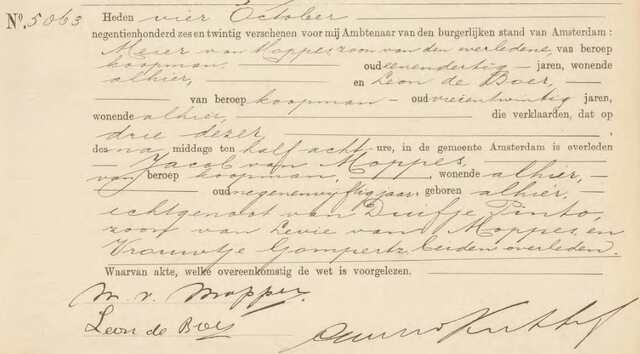 No. 5063 Heden vier October
negentienhonderd zes en twintig verschenen voor mij Ambtenaar van den burgerlijken stand van Amsterdam :
Meier van Moppes, zoon van den overledene, van beroep
koopman, oud eenendertig jaren, wonende
alhier, en Leon de Boer,
van beroep koopman oud vierentwintig jaren,
wonende alhier, die verklaarden, dat op
drie dezer,
des na middags ten half acht ure, in de gemeente Amsterdam is overleden
Jacob van Moppes,
van beroep koopman, wonende alhier,
oud negenenvijftig jaar, geboren alhier,
echtgenoot van Duifje Pinto,
zoon van Levie van Moppes, en
Vrouwtje Gompertz, beiden overleden.
Waarvan akte, welke overeenkomstig de wet is voorgelezen.
M. v. Moppes
Leon de Boer